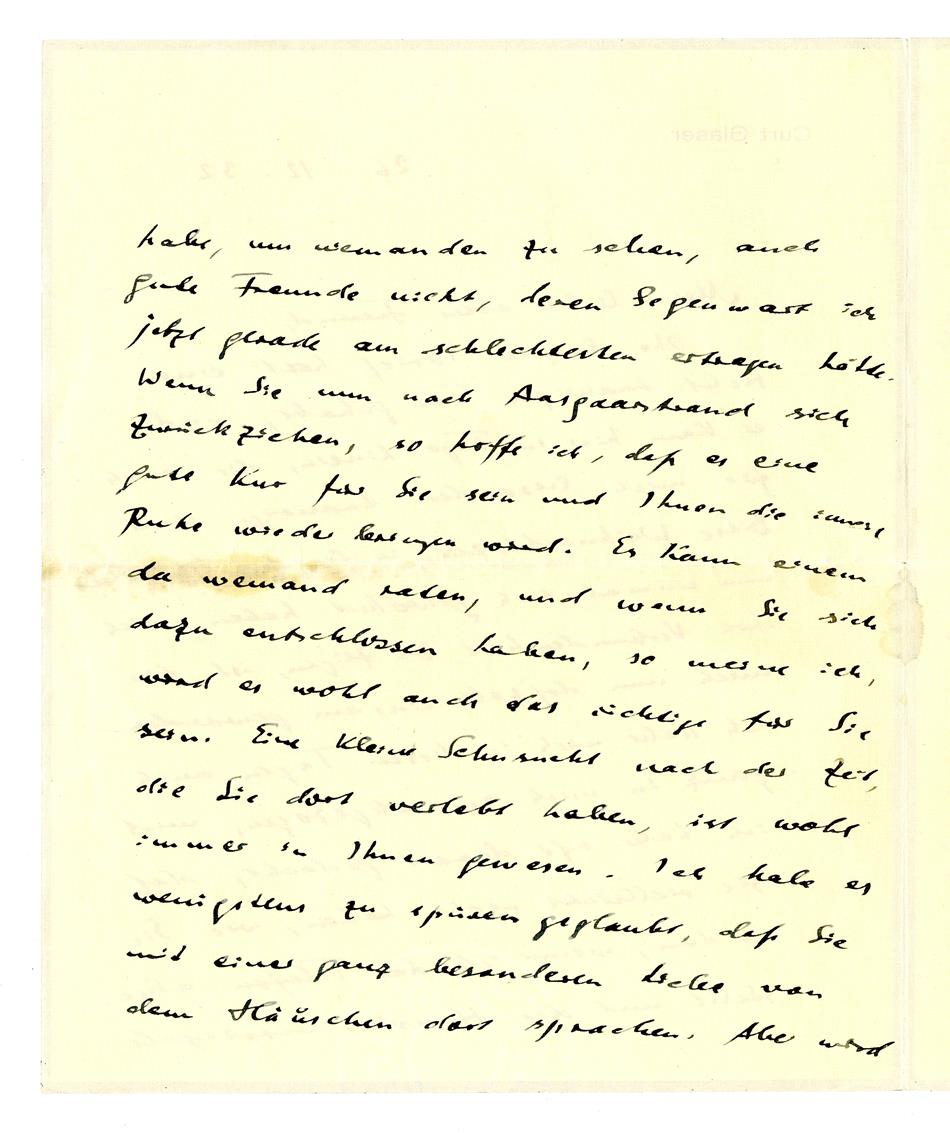 Curt Glaser
26. 12. 32
habe, um niemanden zu sehen, auch
gute Freunde nicht, deren Gegenwart ich
jetzt gerade am schlechtesten ertragen hätte.
Wenn Sie nun nach Aasgaarstrand sich
zurückziehen, so hoffe ich, daß es eine
gute Kur für Sie sein und Ihnen die innere
Ruhe wieder bringen wird. Es kann einem
da niemand raten, und wenn Sie sich
dazu entschlossen haben, so meine ich,
wird es wohl auch das richtige für Sie
sein. Eine kleine Sehnsucht nach der Zeit,
die Sie dort verlebt haben, ist wohl
immer in Ihnen gewesen. Ich habe es
wenigstens zu spüren geglaubt, daß Sie
mit einer ganz besonderen Liebe von
dem Häuschen dort sprachen. Aber wird